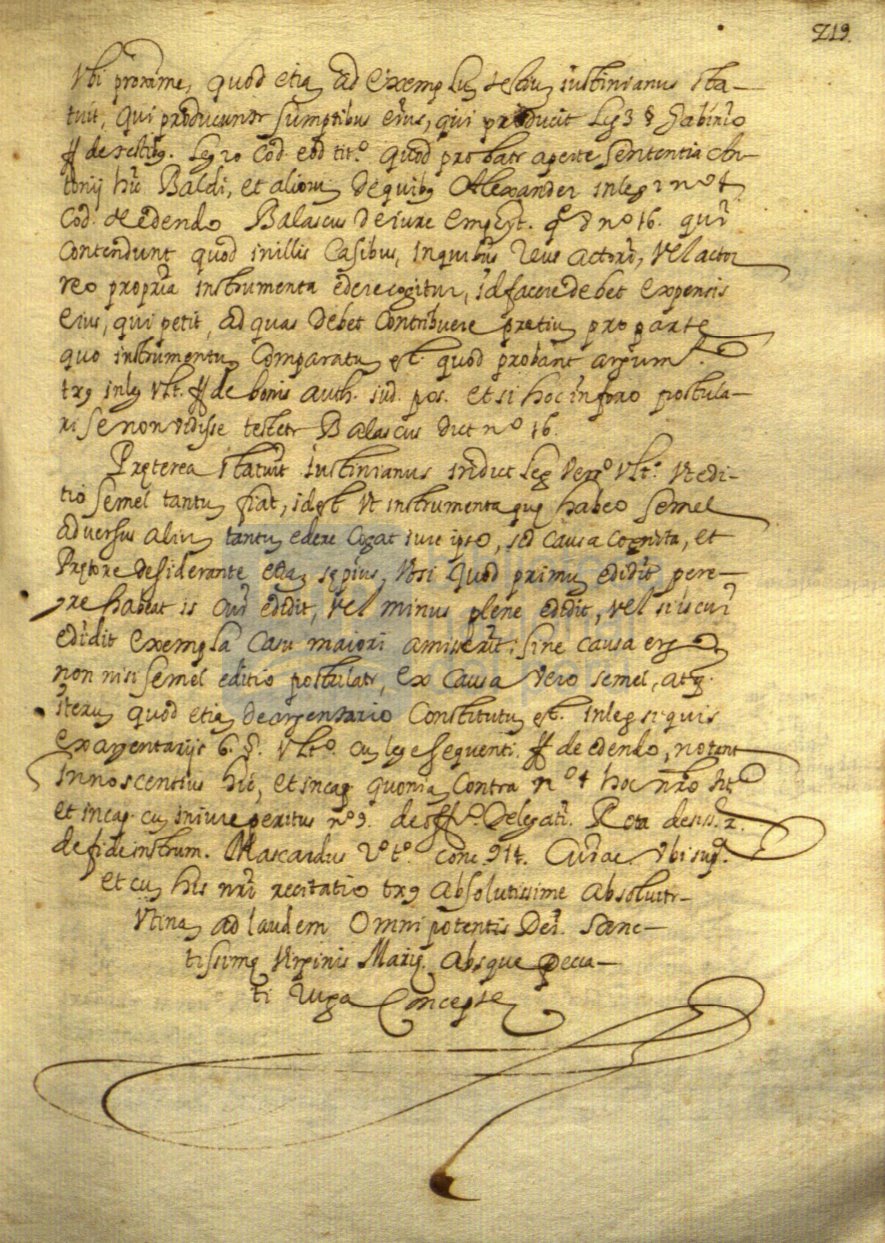 219.
Vbi proxime, quod etia ad exemplu testiu iustinianus sta-
tuit, qui producuntr sumptibus eius, qui producit leg 3 § Gabinio
ff de testibg. leg 20 Cod. eod tit.º quod probatr aperte sententia An-
tonij hic Baldi, et alioru de quibg Alexander in leg 2 nº 4
Cod. de edendo Balascus de iure emphyt. q nº 16. qui
Contendunt quod in illis casibus, in quibus reus actori, vel actor
reo propria instrumenta edere cogitur, id facere debet expensis
eius, qui petit, ad quas debet contribuere pretiu pro parte
quo instrumentu comparatu est. quod probant argum.
tex9 in leg vlt. ff de bonis auth. iud. pos. et si hoc in foro postula-
ri se non vidisse testetr Balascus dict nº 16.
Preterea statuit iustinianus in dict leg vers.º vlt.º vt edi-
tio semel tantu fiat, id est vt instrumenta que habeo semel
adversus aliu tantu edere cogar iure ipso, sed causa cognita, et
Pretore desiderante etia sepius, vbi quod primu edidit pere-
re habeat is cui edidit, vel minus plene edidit, vel si is cui
edidit exempla casu maiori amiserit: sine causa ergo
non nisi semel editio postulatr, ex causa vero semel, atq.
iteru quod etia de argentario constitutu est. in leg si quis
ex argentarijs 6. §. vlt.º cu lege sequenti. ff de edendo, notant
Innoscentius hic, et in cap quonia contra nº 4 hoc nro tit
et in cap. cu in iure peritus nº 9. de off.º Delegati. Rota decis. 2.
de fide instrum. Mascardus 2º tº conc. 914. Curiae vbi sup.
et cu his nri recitatio tex9 absolutissime absolvitr-
Vtina ad laudem Omnipotentis Dei. Sanc-
tissime Virginis Marie. Absque pecca-
ti ruga concepte